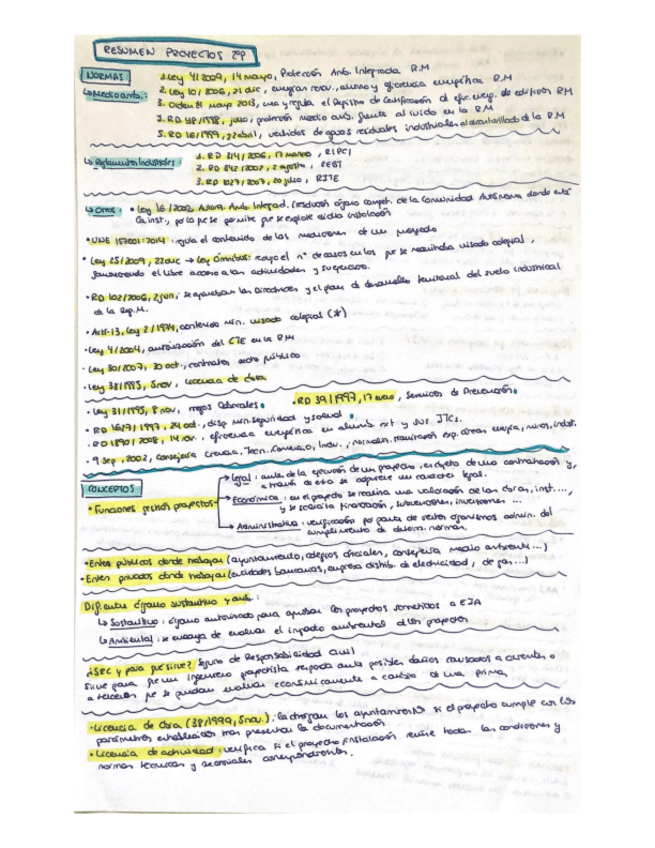 RESUMEN PROYECTOS 2ºP
NORMAS
↳ Medio amb.:
1. Ley 4/2009, 14 mayo, Protección Amb. Integrada R.M
2. Ley 10/2006, 21 dic, energías renov., ahorro y eficiencia energética R.M
3. Orden 21 mayo 2013, crea y regula el Registro de Certificación de efic. energ. de edificios RM
4. RD 48/1998, julio, protección medio amb. frente al ruido en la R.M
5. RD 16/1999, 22 abril, vertidos de aguas residuales industriales al alcantarillado de la R.M
↳ Reglamentos Industriales:
1. RD 314/2006, 17 marzo, RIPCI
2. RD 842/2002, 2 agosto, REBT
3. RD 1027/2007, 20 julio, RITE
↳ Otros: • Ley 16/2002, Autoriz. Amb. Integrad. (resolución órgano compet. de la Comunidad Autónoma donde está
la inst., por la que se permite que se explote dicha instalación
• UNE 157001:2014: regula el contenido de las mediciones de un proyecto
• Ley 25/2009, 22 dic → Ley Ómnibus: recoge el nº de casos en los que se necesitaba visado colegial,
favoreciendo el libre acceso a las actividades y su ejercicio.
• RD 102/2006, 2 jun; se aprueban las Directrices y el plan de desarrollo territorial del suelo industrial
de la Reg.M.
• Art. 13, Ley 2/1974, contenido mín. visado colegial (*)
• Ley 4/2004, autorización del CTE en la R.M
• Ley 30/2007, 30 oct., contratos secto público
• Ley 38/1995, 5 nov, Licencia de Obra
• Ley 31/1995, 8 nov, riesgos laborales.
• RD 39/1997, 17 enero, Servicios de Prevención.
• RD 1627/1997, 24 oct, disp mín. seguridad y salud.
• RD 1890/2008, 14 nov. eficiencia energética en alumb. ext y sus ITCs.
• 9 Sep, 2002, Consejería Ciencia, Tecn. Comercio, Indu.,
CONCEPTOS
• Funciones gestión proyectos
→ Legal: antes de la ejecución de un proyecto, es objeto de una contratación y,
a través de esta se adquiere un carácter legal.
→ Económica: en el proyecto se realiza una valoración de las obras, inst. ...,
y se solicita financiación, subvenciones, inversiones ...
→ Administrativa: verificación por parte de ciertos organismos admin. del
cumplimiento de determ. normas.
• Entes públicos donde trabajar (ayuntamiento, colegios oficiales, consejería medio ambiente...)
• Entes privados donde trabajar (entidades bancarias, empresa distrib. de electricidad, de gas...)
Dif. entre órgano sustantivo y amb.:
↳ Sustantivo: órgano autorizado para aprobar los proyectos sometidos a EIA
↳ Ambiental: se encarga de evaluar el impacto ambiental de los proyectos
¿SRC y para qué sirve? Seguro de Responsabilidad Civil
Sirve para que un ingeniero proyectista responda ante posibles daños causados a clientes o
a terceros que se puedan evaluar económicamente a cambio de una prima
• Licencia de Obra (38/1999, 5 nov.): la otorgan los ayuntamientos si el proyecto cumple con los
parámetros establecidos tras presentar la documentación
• Licencia de actividad: verifica si el proyecto/instalación reúne todas las condiciones y
normas técnicas y sectoriales correspondientes.